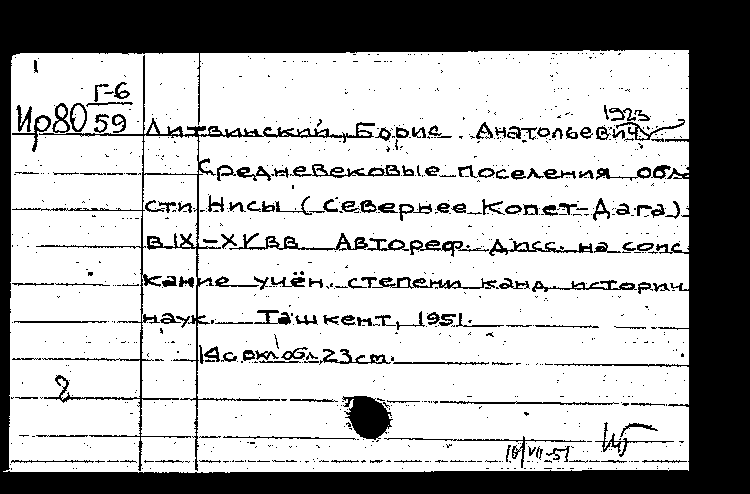 Г-6
Ир80 59
1923
Литвинский, Борис Анатольевич
Средневековые поселения обла
сти Нисы (Севернее Копет-Дага)
в IX-XV вв. Автореф. дисс. на соис
кание учён. степени канд. историч
наук. Ташкент, 1951.
14с вкл обл 23 cm.
10/VII-51